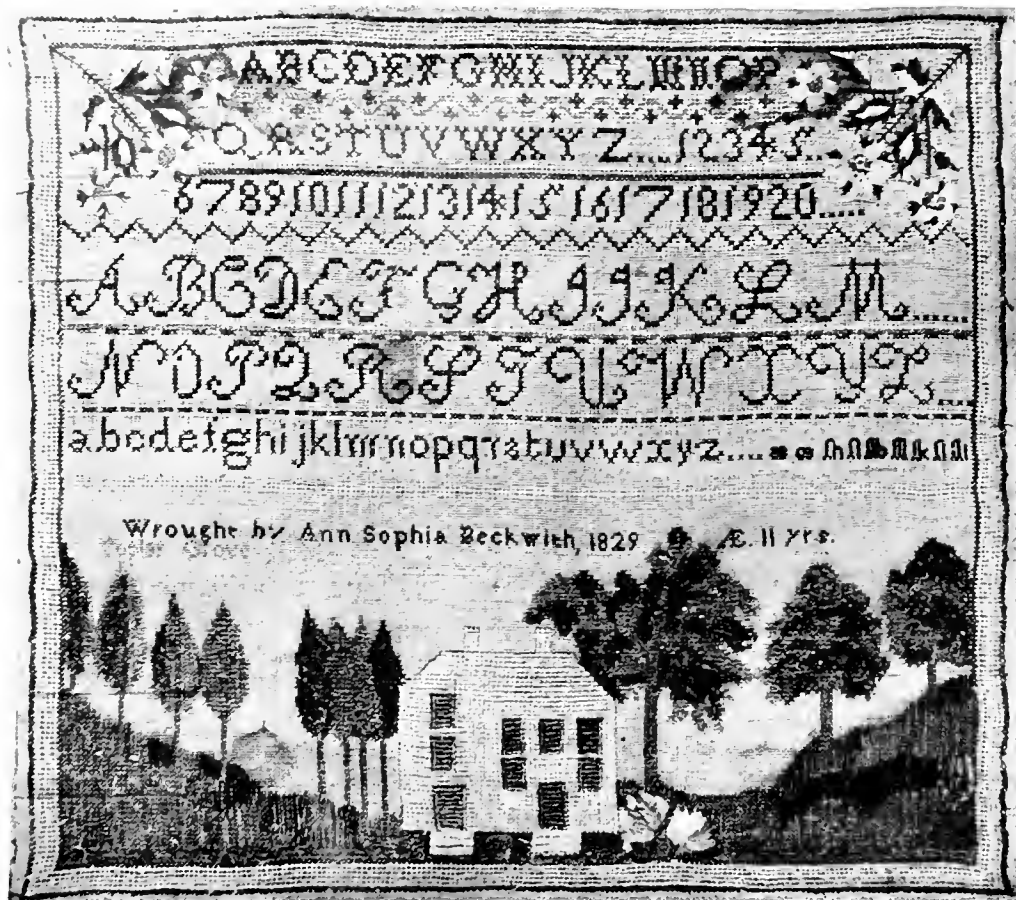 ABCDEFGHIJKLMNOP
QRSTUVWXYZ....12345..
67891011121314151617181920.....
ABCDEFGHIJKLM.....
NOPQRSTUWXYZ...
abcdefghijklmnopqrstuvwxyz....æ œ
Wrought by Ann Sophia Beckwith, 1829 Æ. 11 yrs.
Poplar Grove